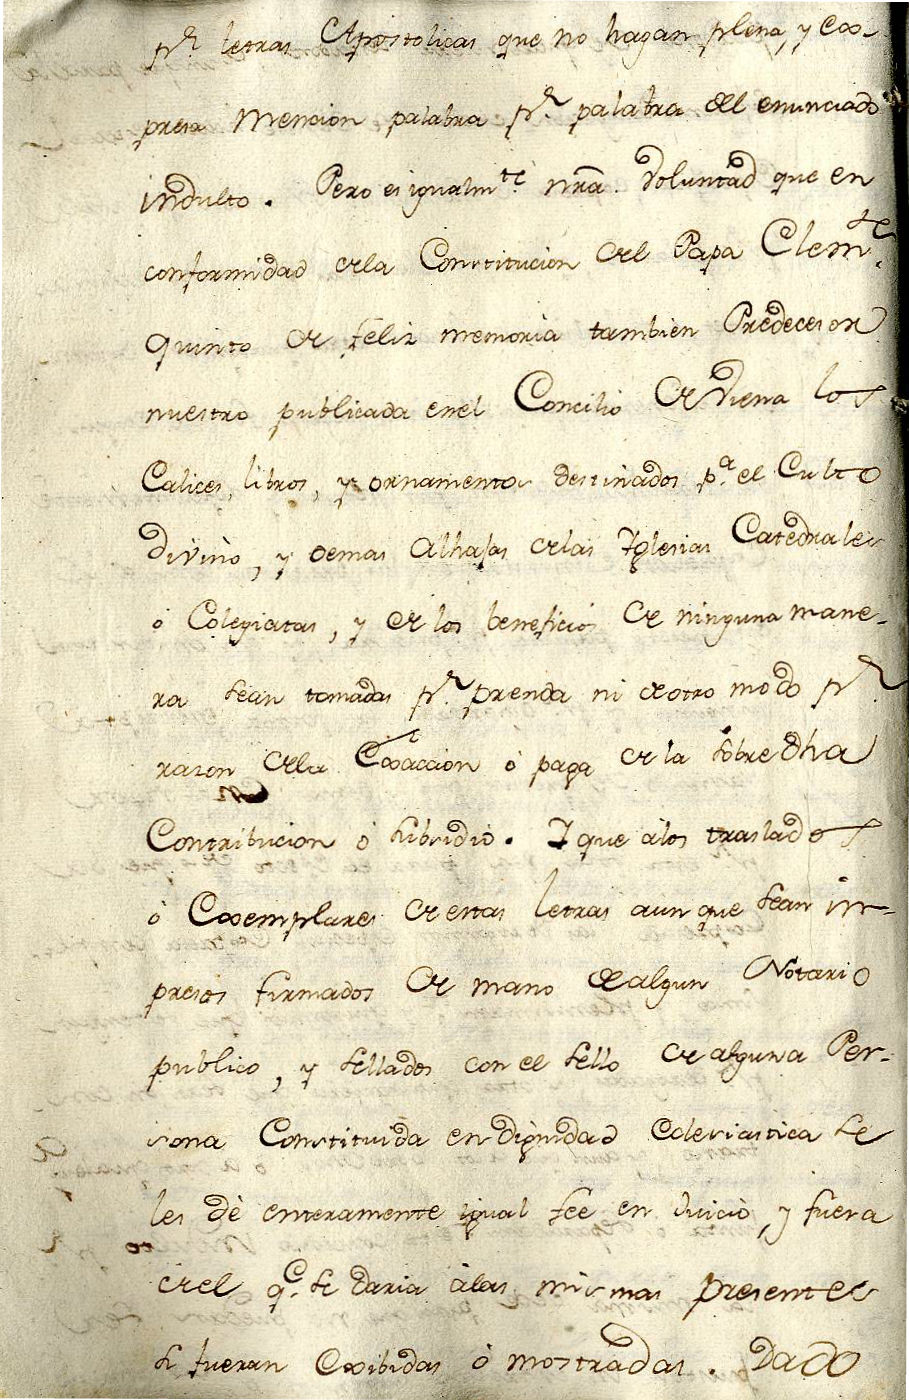 pr. letras Apostolicas que no hagan plena, y Ex-
presa Mencion palabra pr. palabra del enunciado
indulto. Pero es igualmte. nrã. Voluntad que en
conformidad dela Constitucion del Papa Clemte.
quinto de feliz memoria tambien Predecesor
nuestro publicada enel Concilio de Viena los
Calices, libros, y ornamentos destinados pa. el Culto
divino, y demas Alhajas delas Iglesias Catedrales
ó Colegiatas, y de los beneficios de ninguna mane-
ra sean tomadas pr. prenda ni deotro modo pr.
razon dela Exaccion ó paga de la sobre dha
Contribucion ó subsidio. Y que álos traslados
ó Exemplares de estas letras aunque sean im-
presos firmados de mano de algun Notario
publico, y sellados con el sello de alguna Per-
sona Constituida en dignidad Eclesiastica se
les dè enteramente igual fee en Juicio, y fuera
del qe. se daria álas mismas presentes
si fueran Exibidas ó mostradas. Dado